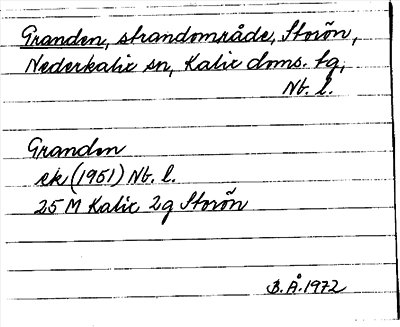 Granden, strandområde, Storön,
Nederkalix sn, Kalix doms. tg,
Nb. l.
Granden
ek (1961) Nb. l.
25 M Kalix 2g Storön
B.Å. 1972